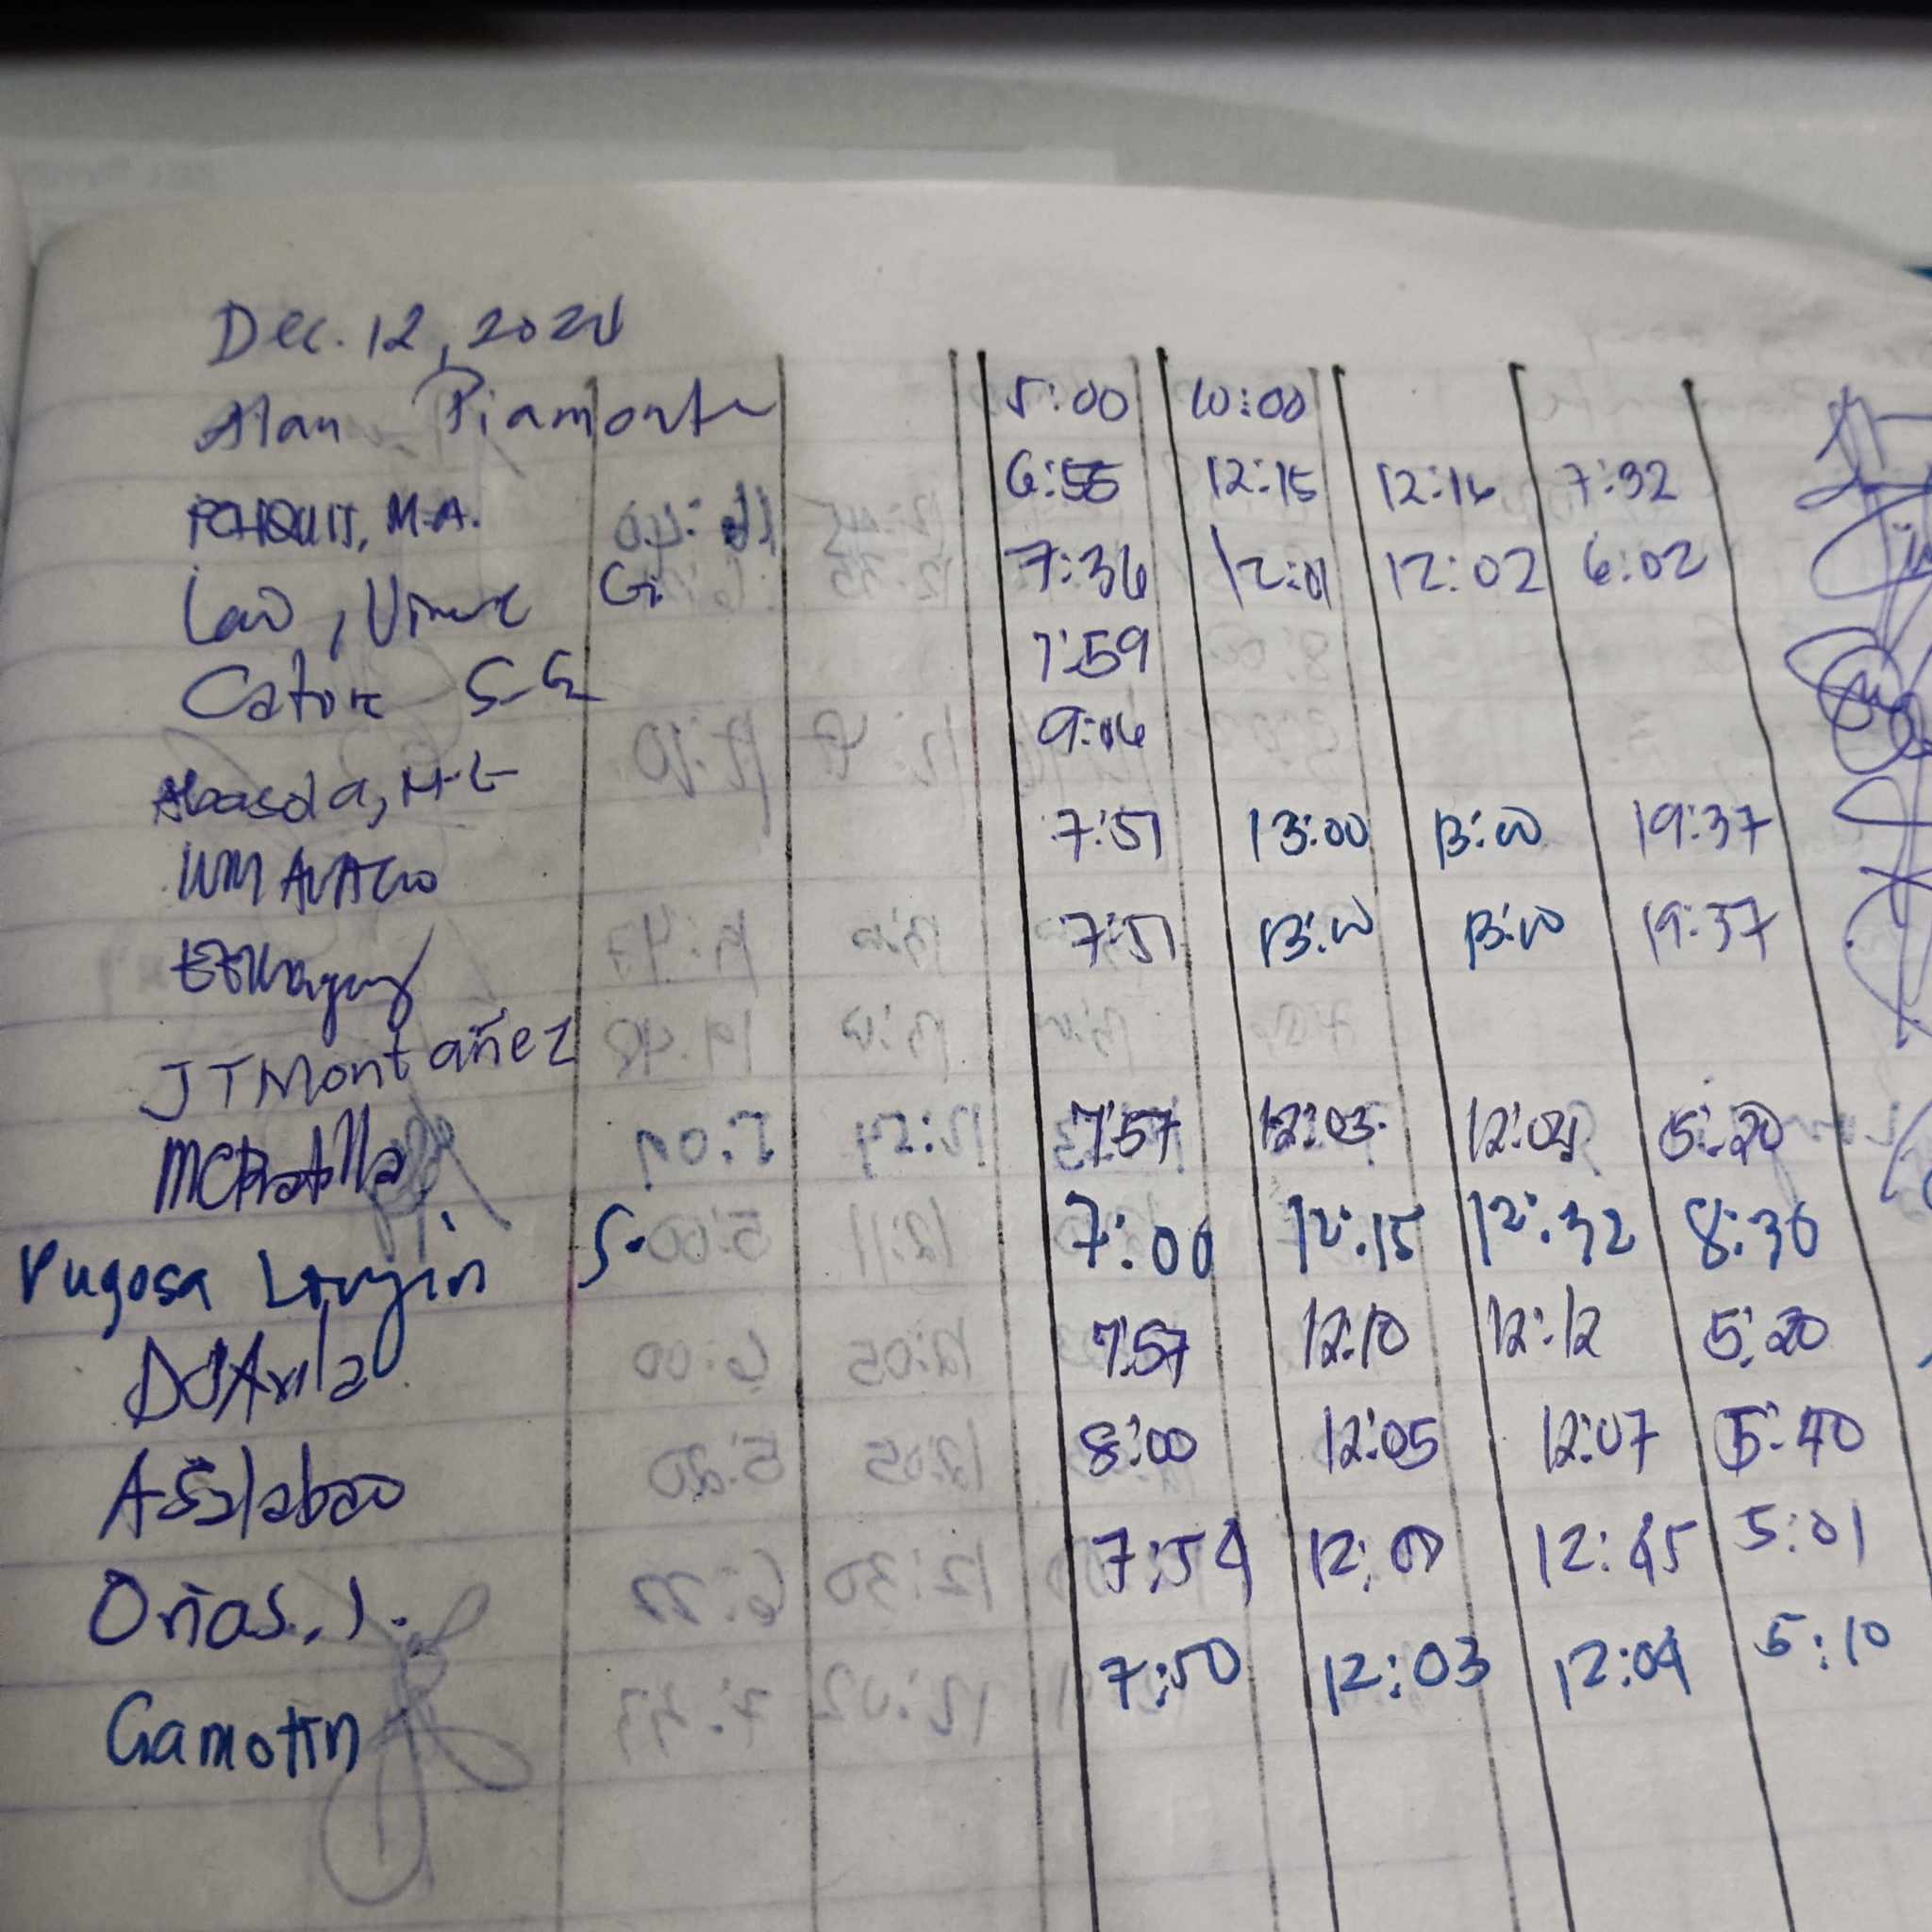 Dec. 12, 2024
Alan Piamonte 5:00 10:00
M.A. 6:55 12:15 12:16 7:32
Law, Vince G. 7:36 12:01 12:02 6:02
Catore S.G 7:59
Abasola, M.E 9:06
WM 7:51 13:00 13:00 19:37
7:51 13:00 13:00 19:37
JTMontañez
MCPratilla 7:57 12:03 12:04 5:20
Pugosa Longin S. 7:00 12:15 12:32 8:36
DJAvila 7:57 12:10 12:12 5:20
ASalabao 8:00 12:05 12:07 5:40
Oñas, J. 7:54 12:00 12:45 5:01
Gamotin 7:50 12:03 12:04 5:10